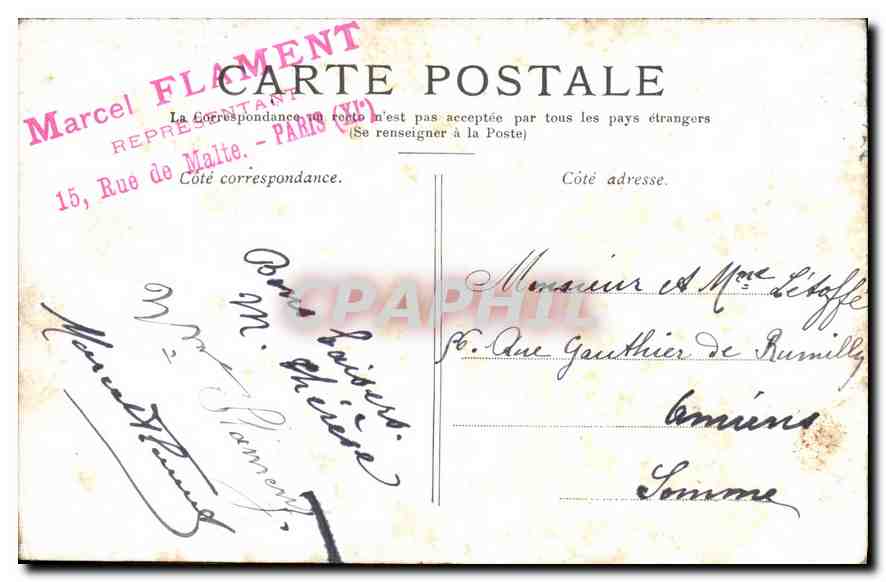 Marcel FLAMENT
REPRESENTANT
15, Rue de Malte. - PARIS (XIe)
CARTE POSTALE
La Correspondance au recto n'est pas acceptée par tous les pays étrangers
(Se renseigner à la Poste)
Côté correspondance.
Côté adresse.
Bons baisers.
M. Thérèse
Vve Flament.
Marcel Flament
CPAPHIL
Monsieur et Mme Létoffé
56. Rue Gauthier de Rumilly
Amiens
Somme